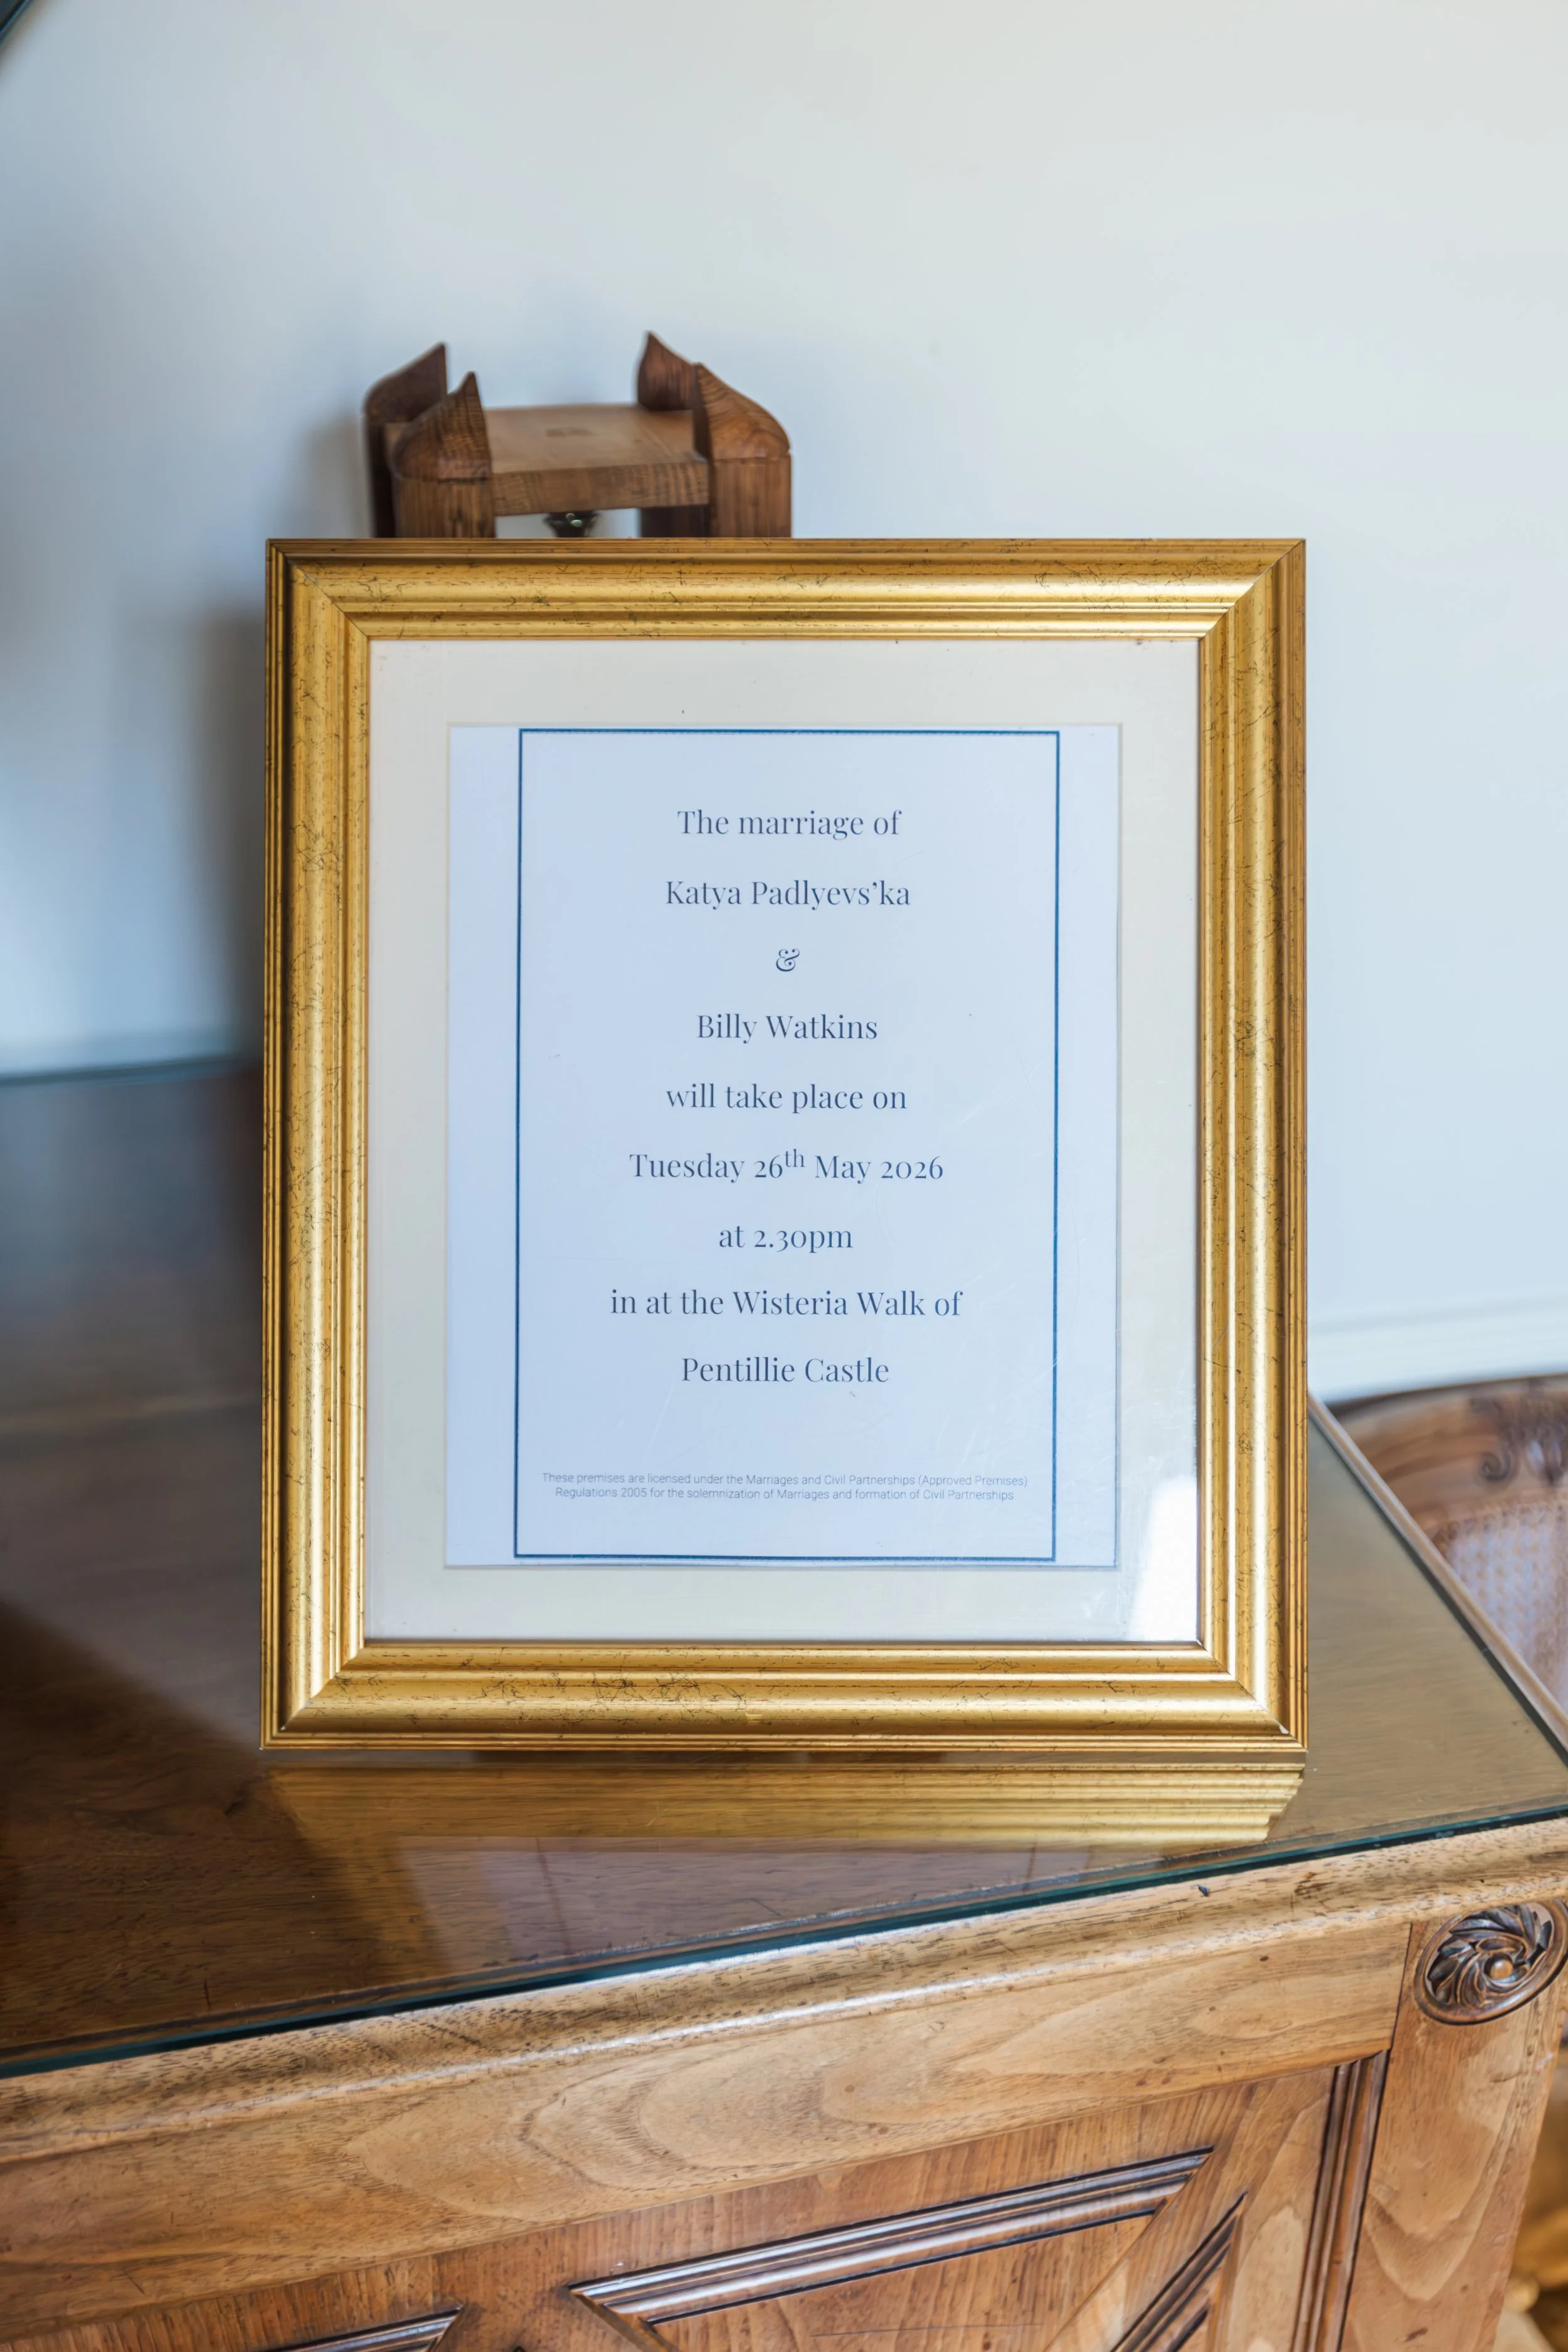 The marriage of
Katya Padlyevs’ka
&
Billy Watkins
will take place on
Tuesday 26th May 2026
at 2.30pm
in at the Wisteria Walk of
Pentillie Castle
These premises are licensed under the Marriages and Civil Partnerships (Approved Premises)
Regulations 2005 for the solemnization of Marriages and formation of Civil Partnerships